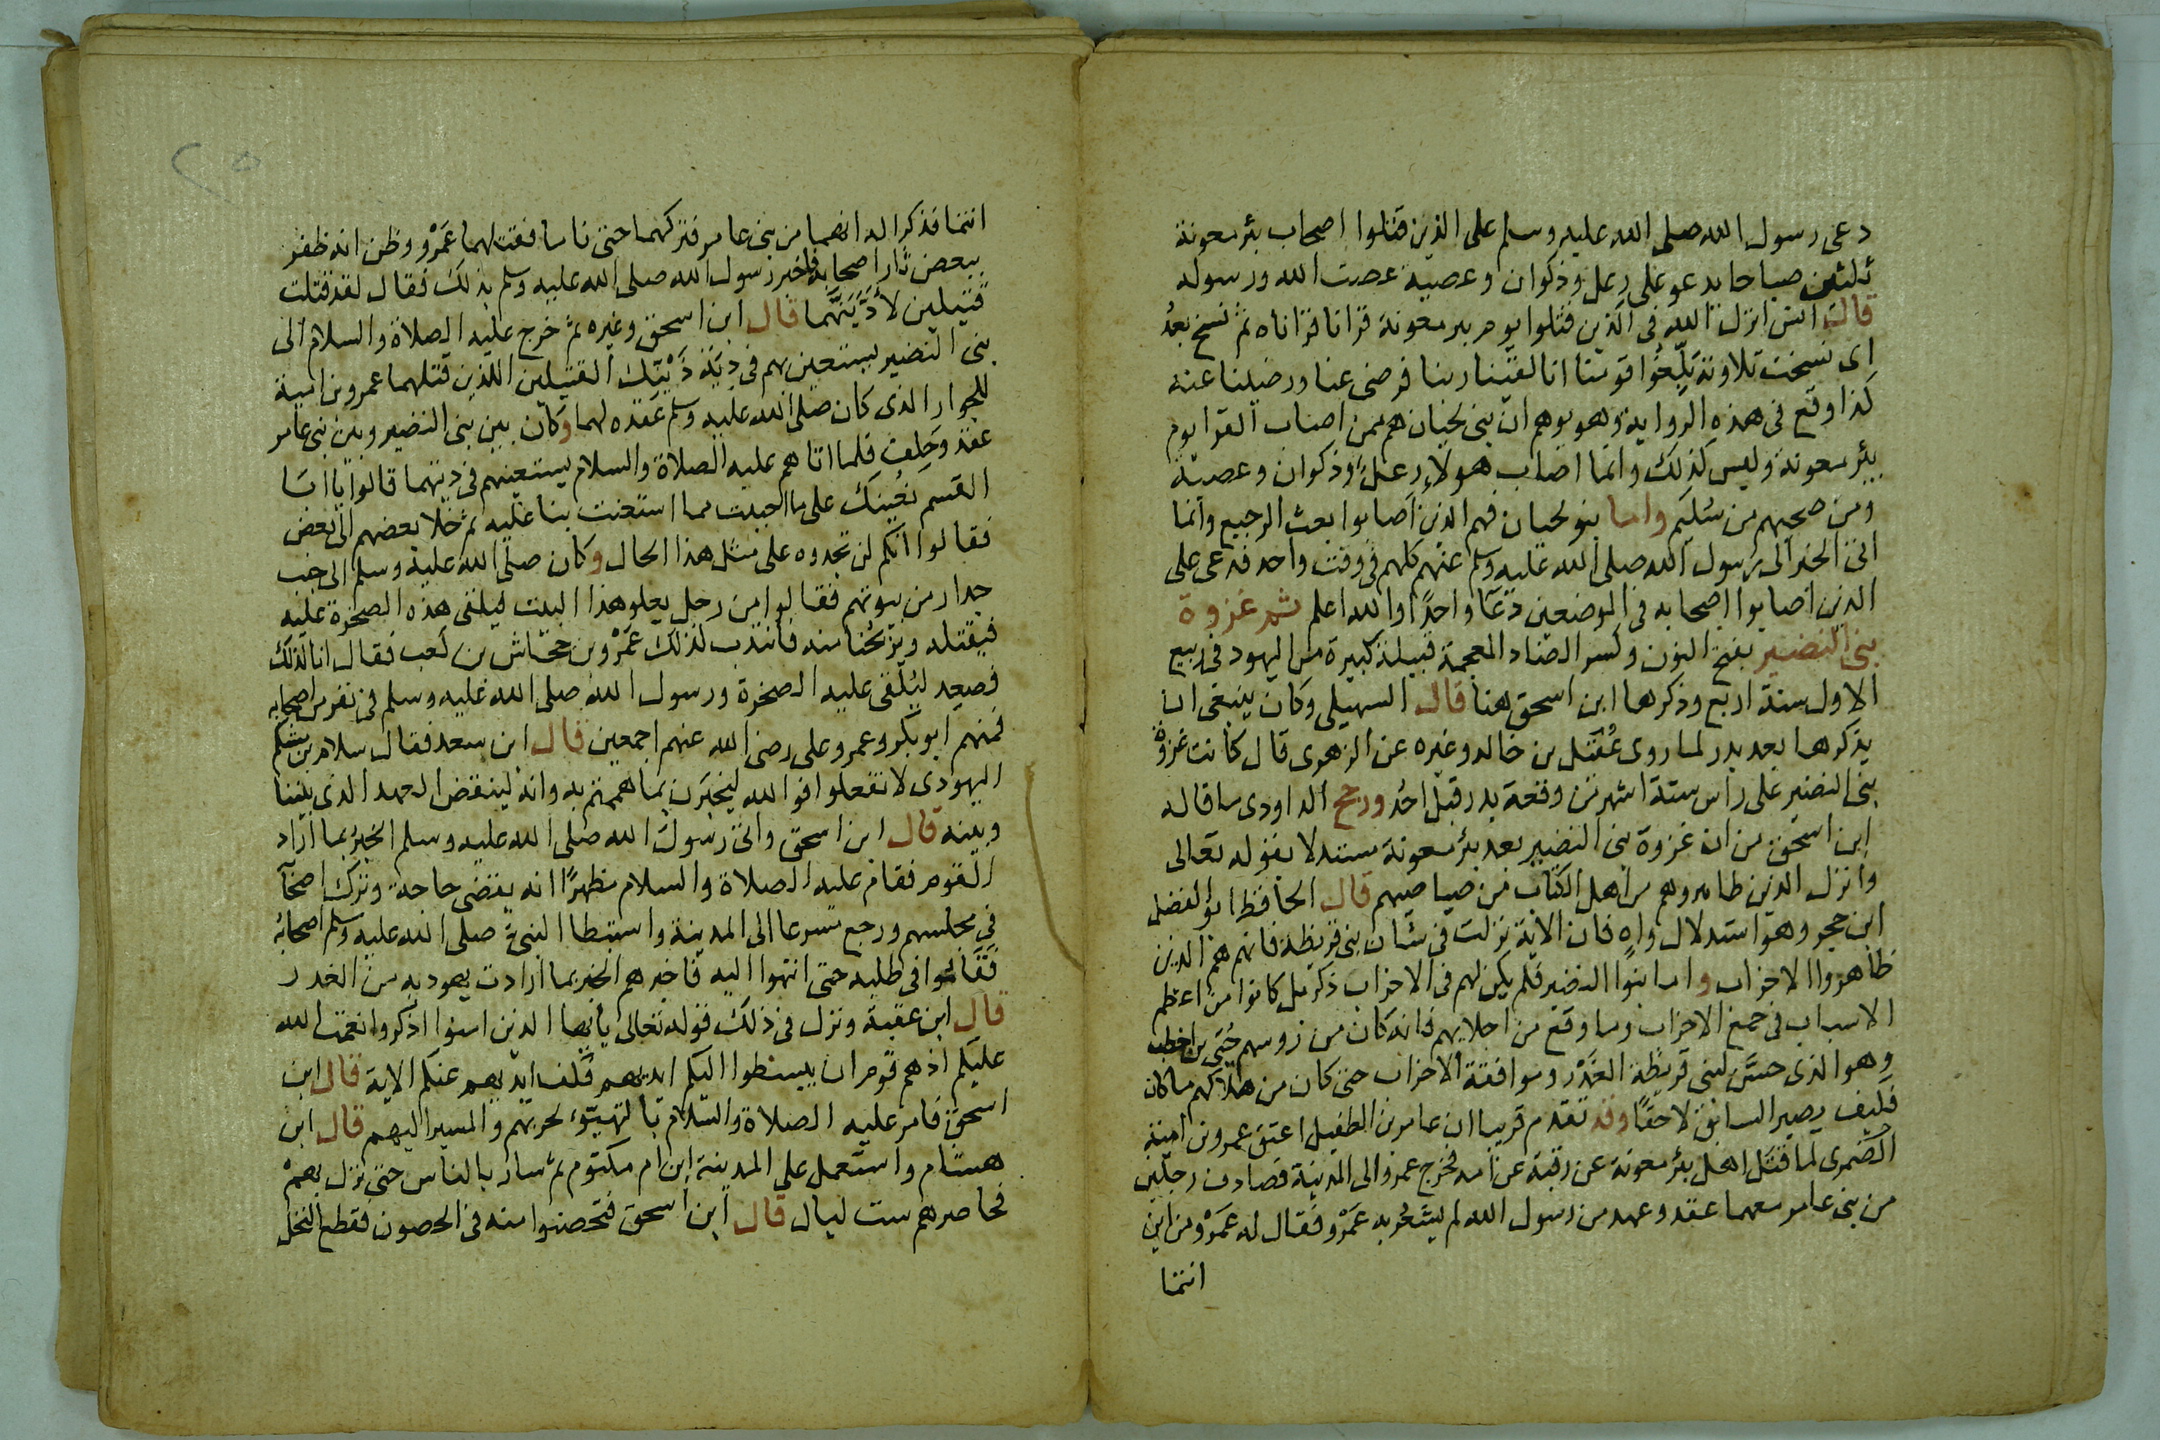 دعى رسول الله صلى الله عليه وسلم على الذين قتلوا اصحاب بئر معونة
ثلثين صباحا يدعو على رعل وذكوان وعصية عصت الله ورسوله
قالـ انس انزل الله فى الذين قتلوا يوم بير معونة قرانا قراناه ثم نسخ بعدُ
اى نسخت تلاوته بَلِّغُوا قومنا انا لقينا ربنا فرضى عنا ورضينا عنه
كذا وقع فى هذه الرواية وهو يوهم ان بنى لحيان هم ممن اصاب القرا يوم
بئر معونة وليس كذلك وانما اصاب هولآءِ رعلٌ وذكوان وعصية
ومن صحبهم من سُليم واما بنو لحيان فهم الذين اصابوا بعث الرجيع وانما
اتى الخبر الى رسول الله صلى الله عليه وسلم عنهم كلهم فى وقت واحد فدعى على
الذين اصابوا اصحابه فى الموضعين دعًا واحدًا والله اعلم ثم غزوة
بنى النضير بفتح النون وكسر الضاد المعجمة قبيلة كبيرة من اليهود فى ربيع
الاول سنة اربع وذكرها ابن اسحق هنا قال السهيلى وكان ينبغى ان
يذكرها بعد بدر لما روى عُقَيل بن خالد وغيره عن الزهرى قال كانت غزوة
بنى النضير على راس ستة اشهر من وقعة بدر قبل احُد ورجح الداودى ما قاله
ابن اسحق من ان غزوة بنى النضير بعد بئر معونة مستدلا بقوله تعالى
وانزل الذين ظاهروهم من اهل الكتاب من صياصيهم قال الحافظ ابو الفضل
ابن حجر وهو استدلال واهٍ فان الاية نزلت فى شان بنى قريظة فانهم هم الذين
ظاهروا الاحزاب واما بنوا النضير فلم يكن لهم فى الاحزاب ذكر بل كانوا من اعظم
الاسباب فى جمع الاحزاب وما وقع من اجلايهم فانه كان من روسهم حُيَى بن اخطب
وهو الذى حسَّن لبنى قريظة الغَدْر وموافقة الاحزاب حتى كان من هلاكهم ما كان
فكيف يصير السابق لاحقًا وقد تقدم قريبا ان عامر بن الطفيل اعتق عمرو بن امية
الضمرى لما قتل اهل بئر معونة عن رقبة عن امه فخرج عمرو الى المدينة فصادف رجلين
من بنى عامر معهما عقد وعهد من رسول الله لم يَشعُر به عَمْرو فقال له عمْرو من اين
انتما
انتما فذكرا له انهما من بنى عامر فتركهما حتى ناما فقتلهما عَمْرو وظن انه ظفر
ببعض ثار اصحابه فاخبر رسول الله صلى الله عليه وسلم بذلك فقال لقد قتلت
قتيلين لأَدِيَنَّهُمَا قال ابن اسحق وغيره ثم خرج عليه الصلاة والسلام الى
بنى النضير يستعين بهم فى دية ذَيْنِكَ القتيلين اللذين قتلهما عمرو بن امية
للجوار الذى كان صلى الله عليه وسلم عقده لهما وكان بين بنى النضير وبين بنى عامر
عقد وحِلف فلما اتاهم عليه الصلاة والسلام يستعينهم فى ديتهما قالوا يا ابا
القسم نُعِينك على ما احببت مما استعنت بنا عليه ثم خلا بعضهم الى بعض
فقالوا انكم لن تجدوه على مثل هذا الحال وكان صلى الله عليه وسلم الى جنب
جدار من بيوتهم فقالوا من رجل يعلو هذا البيت فيلقى هذه الصخرة عليه
فيقتله ويريحُنا منه فانتدب لذلك عَمْرو بن جحاش بن كعب فقال انا لذلك
فصعِد ليُلقى عليه الصخرة ورسول الله صلى الله عليه وسلم فى نفر من اصحابه
فمنهم ابو بكر وعمر وعلى رضى الله عنهم اجمعين قال ابن سعد فقال سلام بن مشكم
اليهودى لا تفعلوا فوالله ليخبَرن بما هممتم به وانه لينقض العهد الذى بيننا
وبينه قال ابن اسحق واتى رسول الله صلى الله عليه وسلم الخبرُ بما اراد
القوم فقام عليه الصلاة والسلام مظهرًا انه يقضى حاجة وترك اصحآ
فى مجلسهم ورجع مسرعا الى المدينة واستبطا النبىَ صلى الله عليه وسلم اصحابُه
فقاموا فى طلبه حتى انتهوا اليه فاخبرهم الخبر بما ارادت يهود به من الغدر
قال ابن عقبة ونزل فى ذلك قوله تعالى يايها الذين امنوا اذكروا نعمت الله
عليكم اذ هم قوم ان يبسطوا اليكم ايديهم فكف ايديهم عنكم الاية قال ابن
اسحق فامر عليه الصلاة والسَّلام بالتهيّوء لحربهم والمسير اليهم قال ابن
هشام واستعمل على المدينة ابن ام مكتوم ثم سار بالناس حتى نزل بهمْ
فحاصرهم ست ليال قال ابن اسحق فتحصنوا منه فى الحصون فقطع النخل